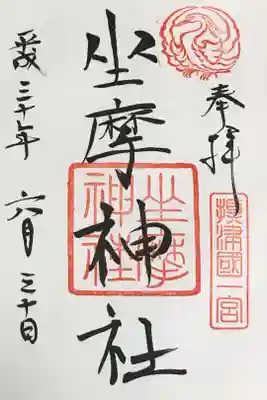 奉拝
摂津國一宮
坐摩神社
坐摩神社
平成三十年
六月三十日